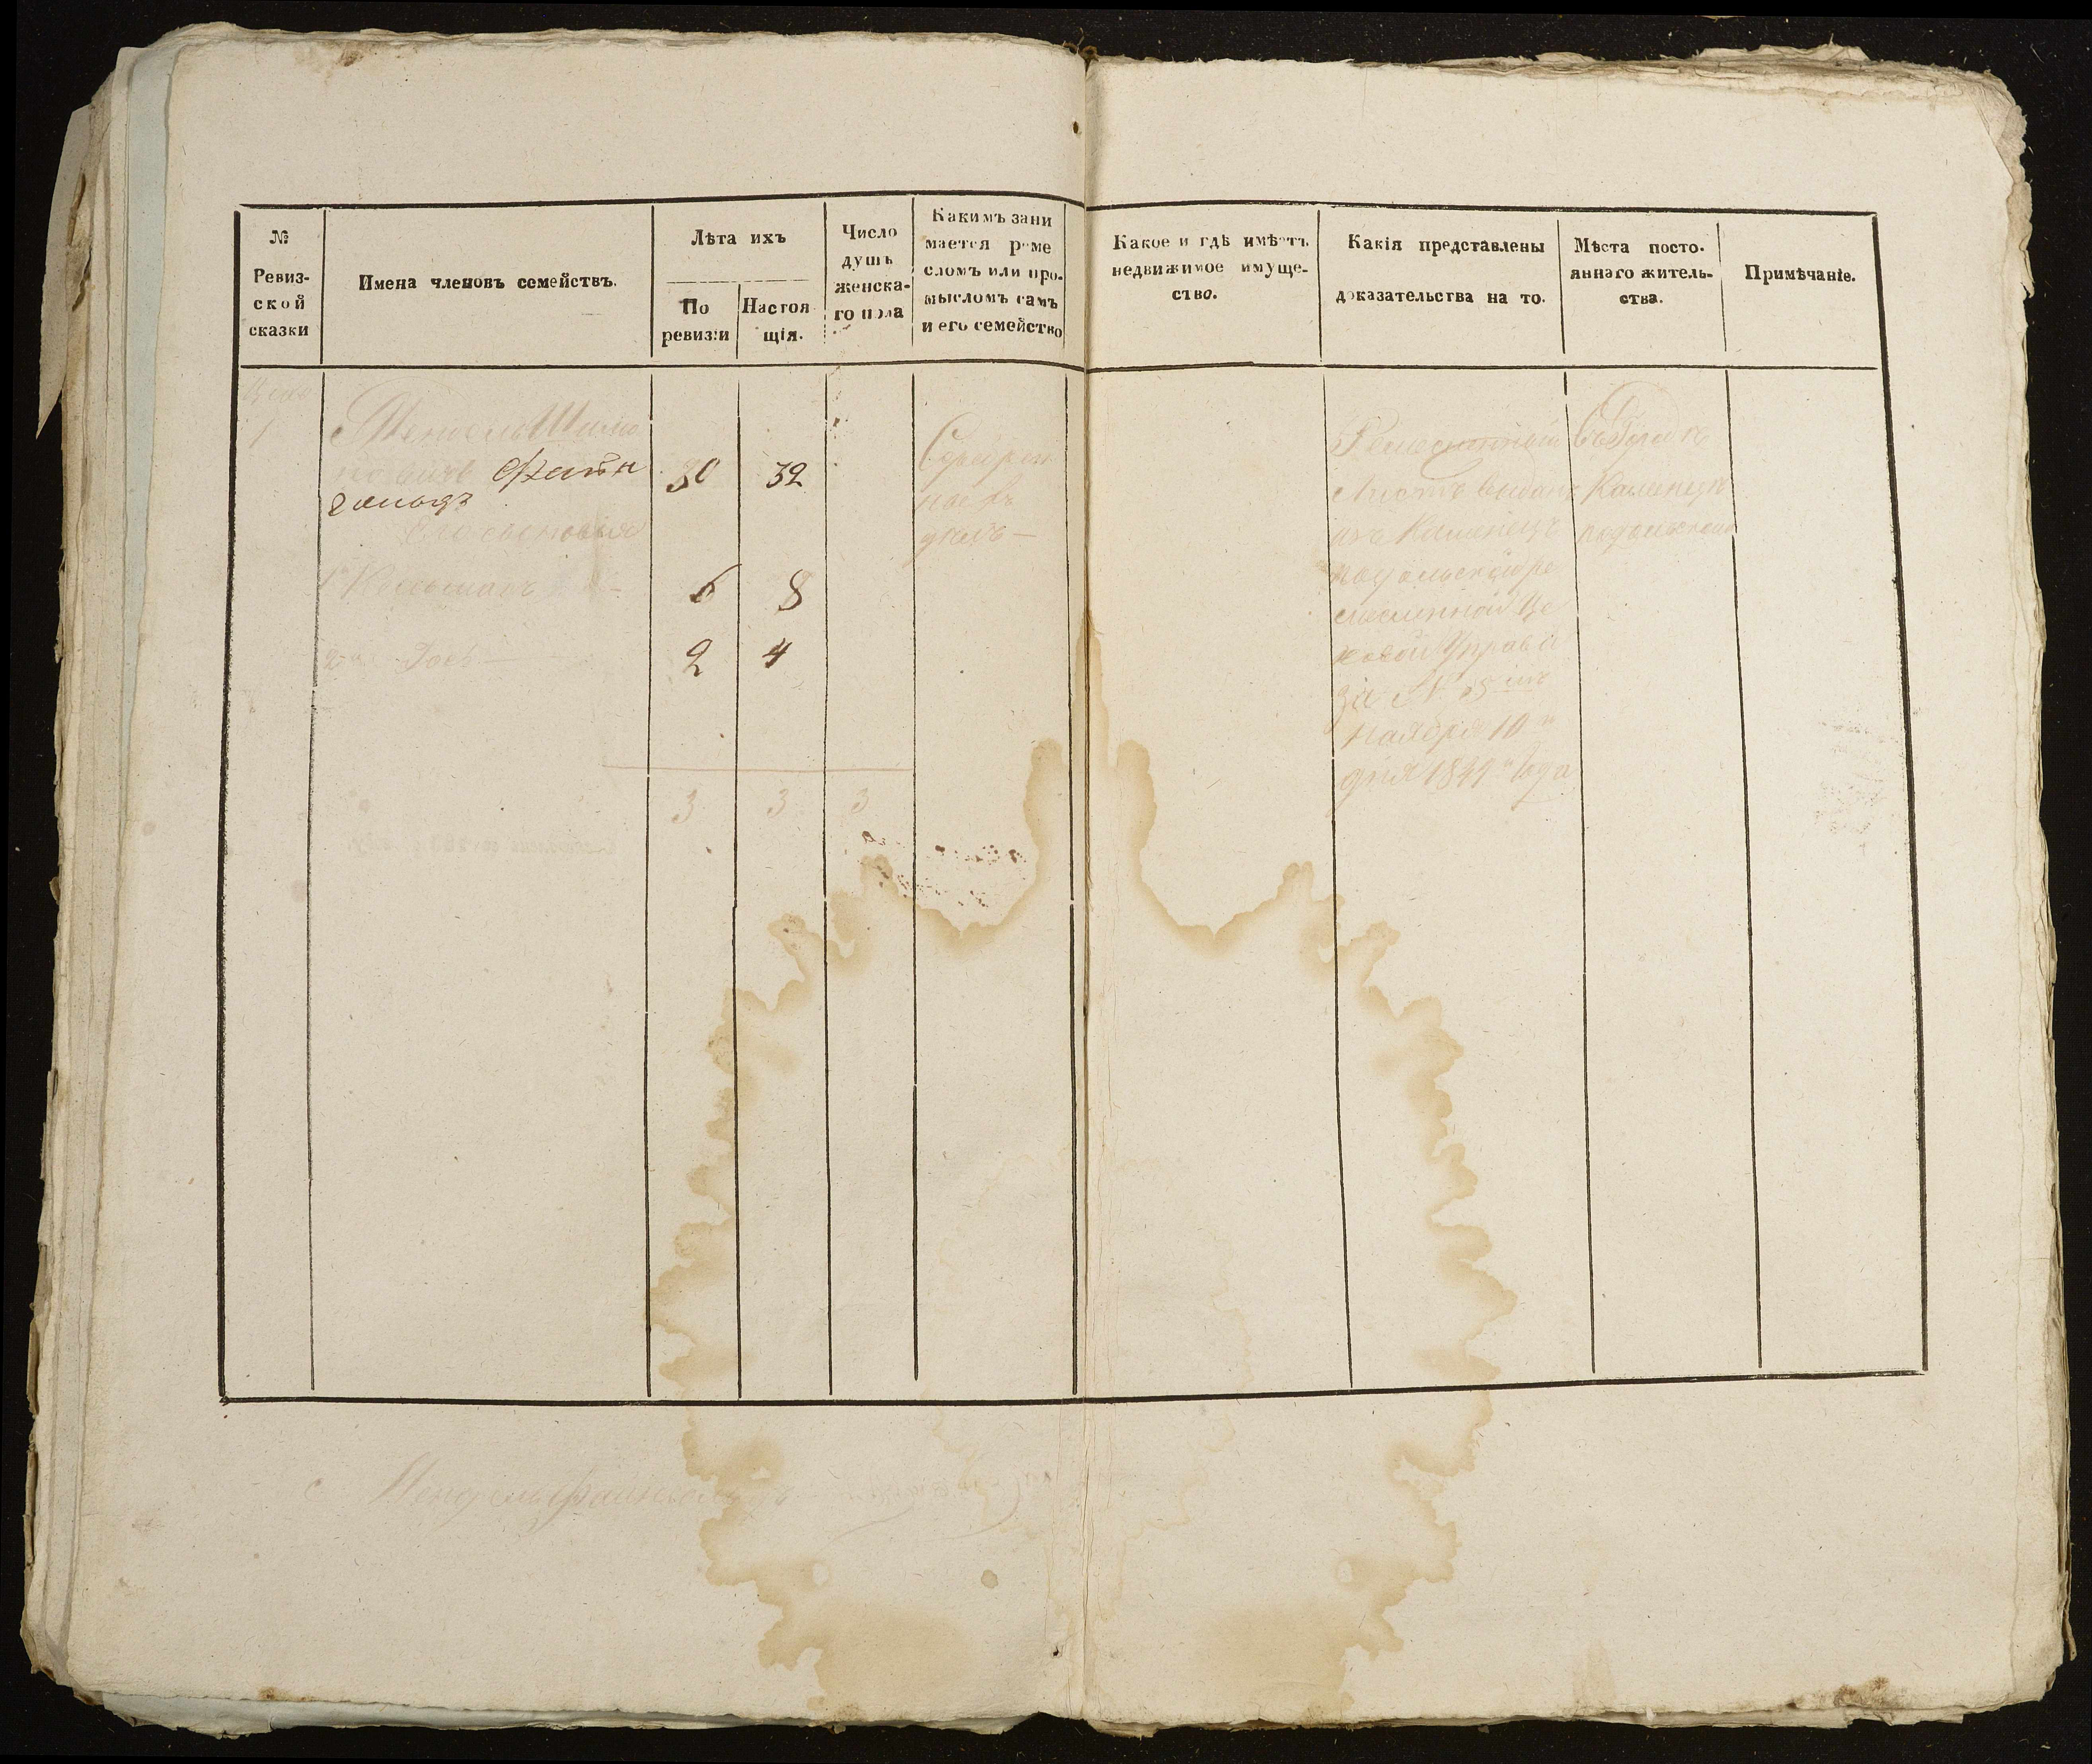 №
Ревиз-
ской
сказки
Имена членовъ семействъ.
Лѣта ихъ
По
ревизіи
Настоя
щія.
Число
душъ
женска-
го пола
Какимъ зани
мается реме
сломъ или про-
мысломъ самъ
и его семейство
Какое и гдѣ имѣетъ
недвижимое имуще-
ство.
Какія представлены
доказательства на то.
Мѣста посто-
яннаго житель-
ства.
Примѣчаніе.
1
Мендель Шимо
новичъ Файн
гольдъ
30
32
Его сыновья
6
8
2 Іосъ
2
4
3
3
3
Серебрен
ныхъ
дѣлъ
Ремесленный
Листъ выданъ
изъ Каменецъ
подольской ре
месленной Це
ховой Управы
за № 85
Ноября 10
дня 1849 года
Въ Городѣ
Каменецъ
подольском
Мендель Файнгольдъ